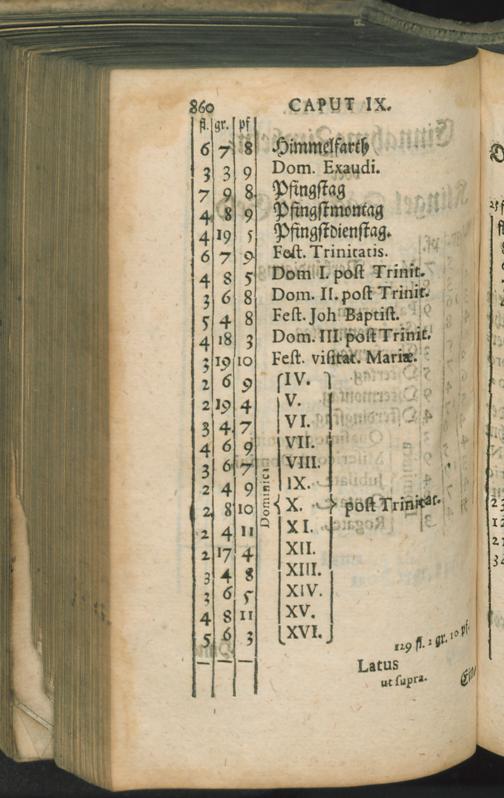 860 CAPUT IX.
fl. gr. pf
6 7 8 Himmelfarth
3 3 9 Dom. Exaudi.
7 9 8 Pfingstag
4 8 9 Pfingstmontag
4 19 5 Pfingstdienstag.
6 7 9 Fest. Trinitatis.
4 8 5 Dom I. post Trinit.
3 6 8 Dom. II. post Trinit.
5 4 8 Fest. Joh Baptist.
4 18 3 Dom. III. post Trinit.
3 19 10 Fest. visitat. Mariæ.
2 6 9 IV.
2 19 4 V.
3 4 7 VI.
4 6 9 VII.
3 6 7 VIII.
2 4 9 IX.
2 8 10 Dominica X. post Trinitat.
2 4 11 XI.
2 17 4 XII.
3 4 8 XIII.
3 6 5 XIV.
4 8 11 XV.
5 6 3 XVI.
129 fl. 2 gr. 10 pf.
Latus
ut supra.